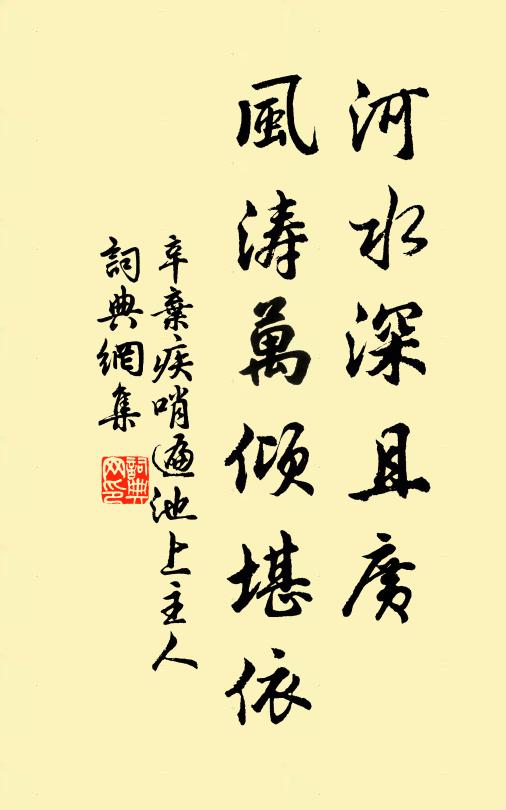 河水深且廣
風涛萬傾堪依
辛棄疾哨遍池上主人
詞典網集
詞典
网印